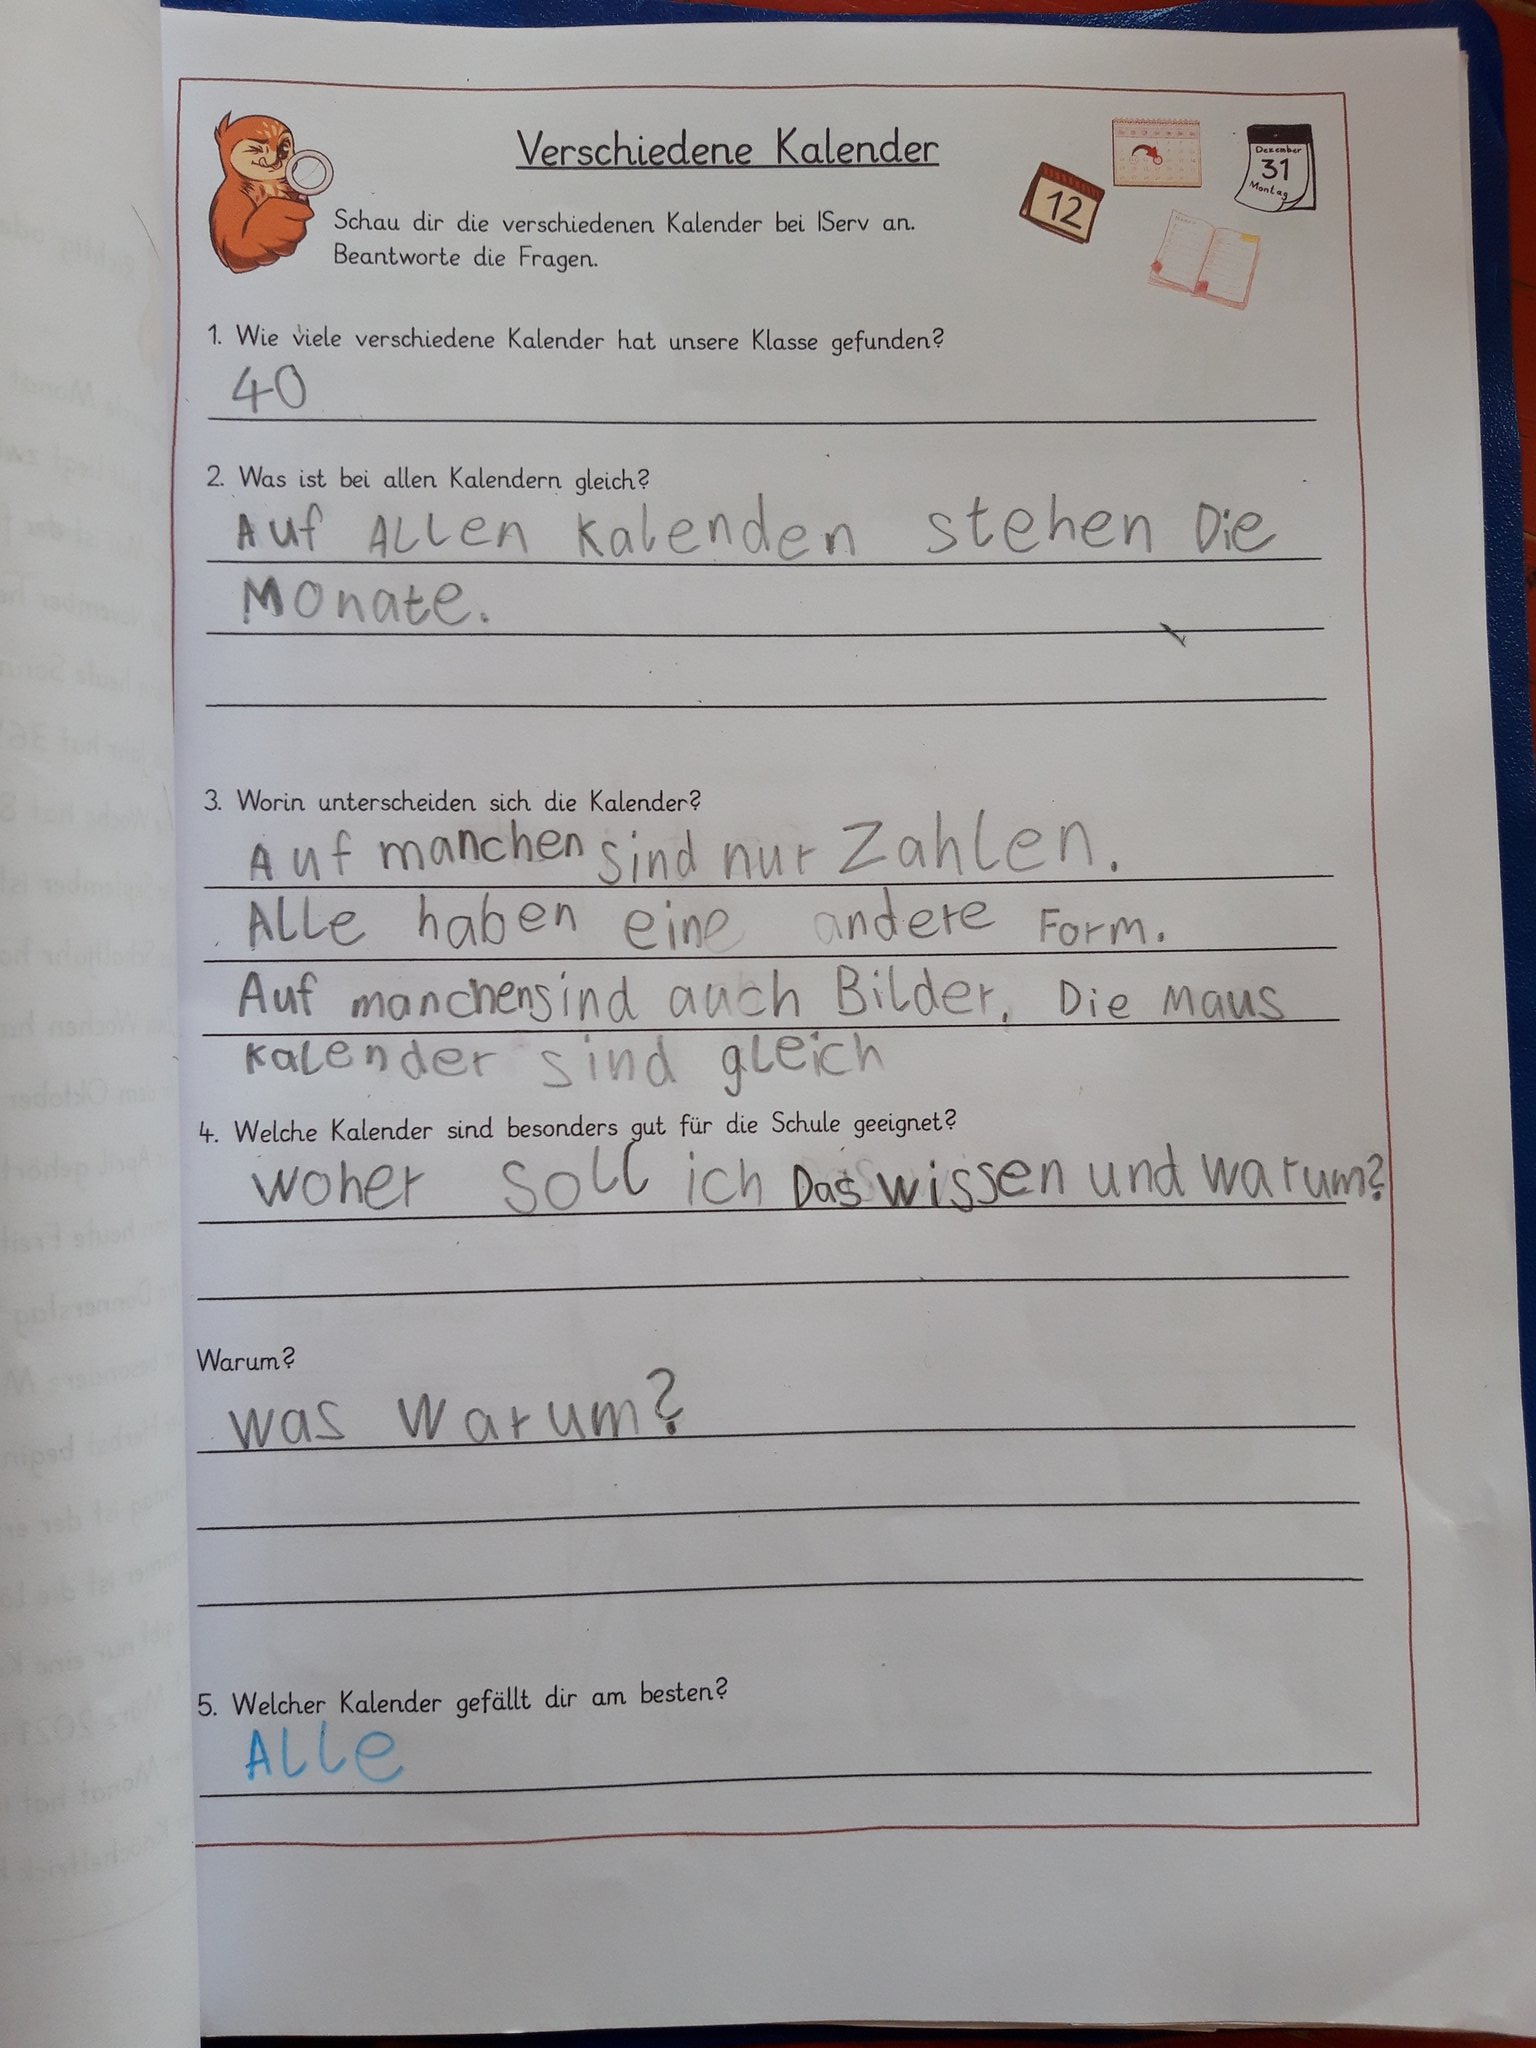 Verschiedene Kalender
12
Dezember
31
Montag
Schau dir die verschiedenen Kalender bei IServ an.
Beantworte die Fragen.
1. Wie viele verschiedene Kalender hat unsere Klasse gefunden?
40
2. Was ist bei allen Kalendern gleich?
Auf ALLen Kalenden stehen Die
Monate.
3. Worin unterscheiden sich die Kalender?
Auf manchen sind nur Zahlen.
Alle haben eine andere Form.
Auf manchen sind auch Bilder. Die Maus
kalender sind gleich
4. Welche Kalender sind besonders gut für die Schule geeignet?
woher soll ich Das wissen und warum?
Warum?
was warum?
5. Welcher Kalender gefällt dir am besten?
Alle